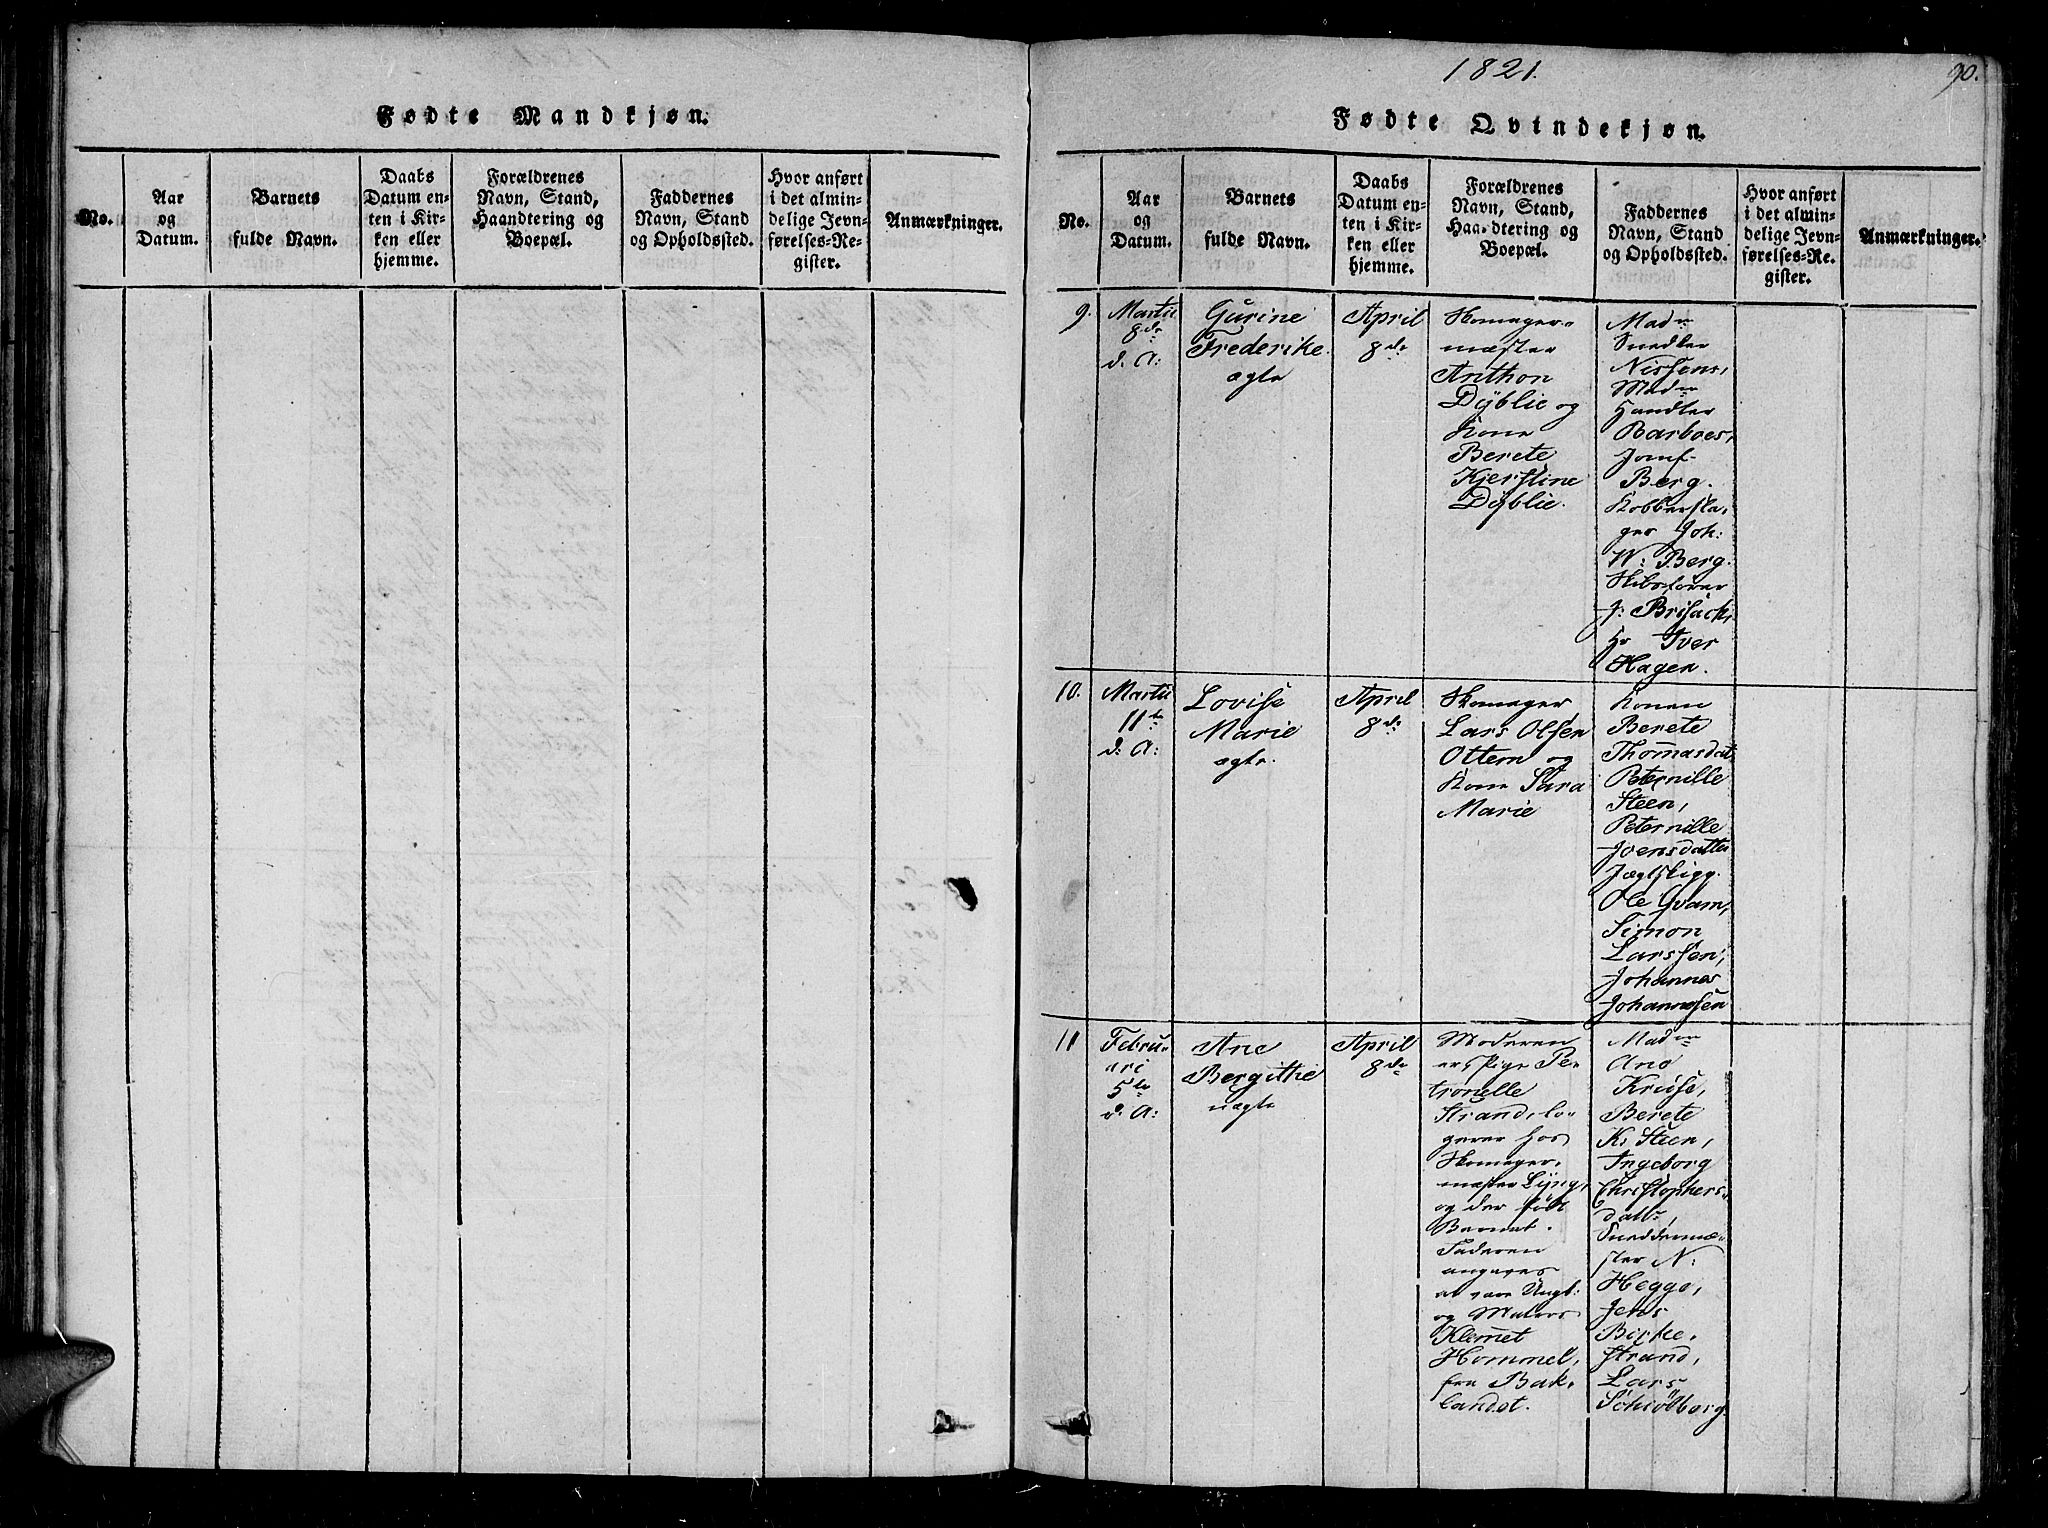 Fødte Mandkjøn.
No.
Aar
og
Datum.
Barnets
fulde Navn.
Daabs
Datum en-
ten i Kir-
ken eller
hjemme.
Forældrenes
Navn, Stand,
Haandtering og
Boepæl.
Faddernes
Navn, Stand
og Opholdssted.
Hvor anført
i det almin-
delige Jevn-
førelses-Re-
gister.
Anmærkninger.
1821.
90.
Fødte Qvindekjøn.
No.
Aar
og
Datum.
Barnets
fulde Navn.
Daabs
Datum en-
ten i Kir-
ken eller
hjemme.
Forældrenes
Navn, Stand,
Haandtering og
Boepæl.
Faddernes
Navn, Stand
og Opholdssted.
Hvor anført
i det almin-
delige Jevn-
førelses-Re-
gister.
Anmærkninger.
9.
Martii
8de
d. A:
Gurine
Frederike
ægte
April
8de
Skomager-
mester
Anthon
Dyblie og
Kone
Berete
Kjerstine
Dyblie.
Madm
Snedker
Nissens,
Madm
Handler
Barboes,
Jomf
Berg.
Kobbersla-
ger Joh:
W: Berg.
Skibsfører
J: Brisach,
Hr Iver
Hagen.
10.
Martii
11te
d. A:
Lovise
Marie
ægte.
April
8de
Skomager
Lars Olsen
Ottem og
Kone Sara
Marie
Konen
Berete
Thomasdat
Peternille
Steen,
Peternille
Joensdatter
Jægtskipp.
Ole Qvam,
Simon
Larssen,
Johannes
Johannesen
11
Febru-
ari
5te
d. A:
Ane
Bergithe
uægte
April
8de
Moderen
er Pige Pe-
tronelle
Strand, lo-
gerer hos
Skomager-
mester Lyng,
og der født
Barnet.
Faderen
angives
at være Ungk:
og Matros
Klemet
Hommel,
fra Bak-
landet.
Madm
Ane
Kruse,
Berete
K: Steen,
Ingeborg
Christophers-
datt,
Sneddermæ-
ster N:
Hegge,
Jens
Birke-
strand,
Lars
Schiølberg.